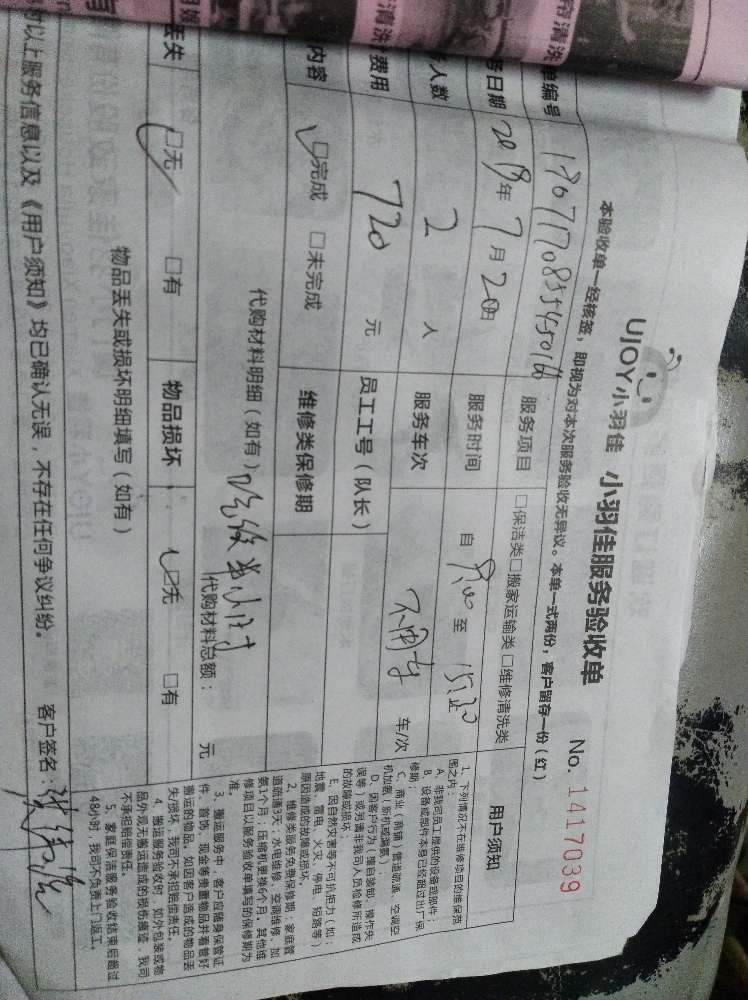 UJOY小羽佳 小羽佳服务验收单
No. 1417039
本验收单一经核签，即视为对本次服务验收无异议。本单一式两份，客户留存一份（红）
单编号 服务项目 □保洁类□搬家运输类□维修清洗类
务日期 2019年7月20日 服务时间 自 9:00 至
人数 2 人 服务车次 不用车 车/次
费用 720 元 员工工号（队长）
内容 □完成 □未完成 维修类保修期
代购材料明细（如有） 代购材料总额： 元
丢失 □无 □有 物品损坏 □无 □有
物品丢失或损坏明细填写（如有）
对以上服务信息以及《用户须知》均已确认无误，不存在任何争议纠纷。 客户签名：
用户须知
1、下列情况不在维修项目的维保范围之内：
A、非我司员工提供的设备或部件；
B、设备或部件本身已经超过出厂保修期；
C、商业（商铺）管道疏通、空调空机加氨（拆机或漏氨）；
D、因客户行为（擅自装卸、操作失误等）或另请非我司人员检修所造成的故障或损坏；
E、因自然灾害等不可抗拒力（如：地震、雷电、火灾、停电、短路等）原因造成的故障或损坏。
2、维修类服务免费保修期：家庭管道疏通5天；水电维修、空调维修、加氨1个月；压缩机更换6个月，其他维修项目以服务验收单填写的保修期为准。
3、搬运服务中，客户应随身保管证件、首饰、现金等贵重物品并看管好搬运的物品。如因客户造成的物品丢失/损坏，我司不承担赔偿责任。
4、搬运服务验收时，如外包装或物品外观无搬运造成的损伤痕迹，我司不承担赔偿责任。
5、家庭保洁服务验收结束后超过48小时，我司不负责上门返工。